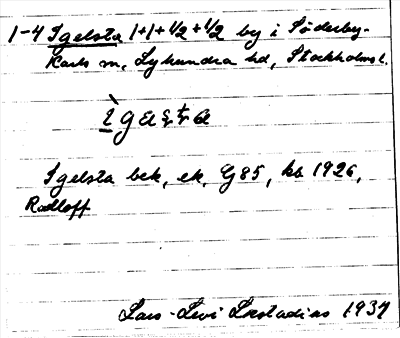 1-4 Igelsta 1+1+1/2+1/2 by i Söderby-
Karls sn, Lyhundra hd, Stockholms l.
Igelsta bek, ek, G 85, kb 1926,
Radloff
Lars-Levi Læstadius 1937